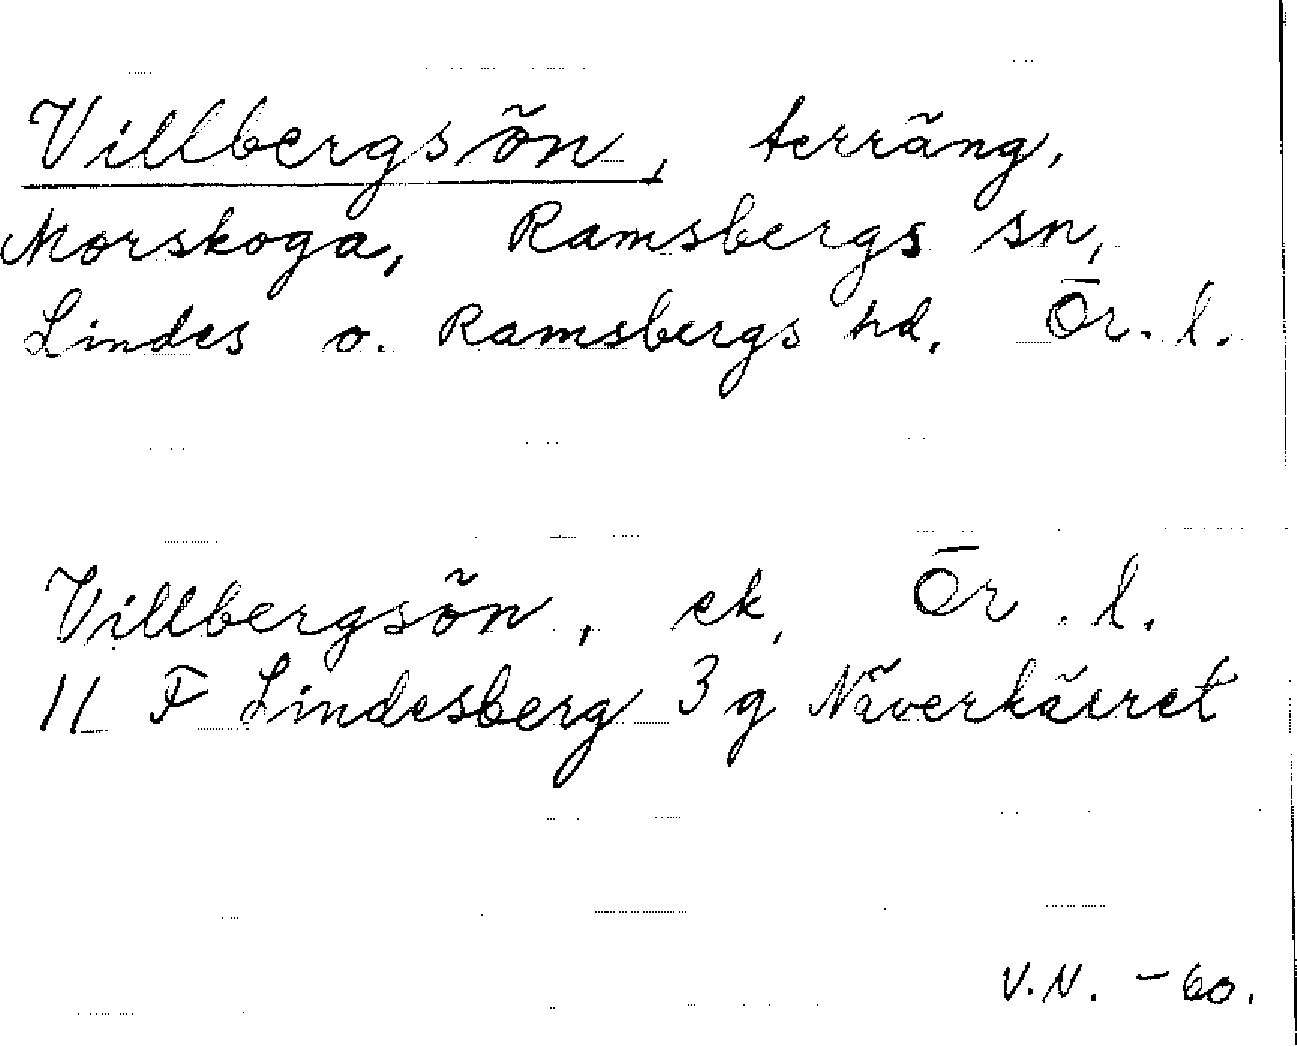 Villbergsön, terräng,
Morskoga, Ramsbergs sn,
Lindes o. Ramsbergs hd. Ör. l.
Villbergsön, ek, Ör. l.
11 F Lindesberg 3 g Näverkärret
V.N. -60.